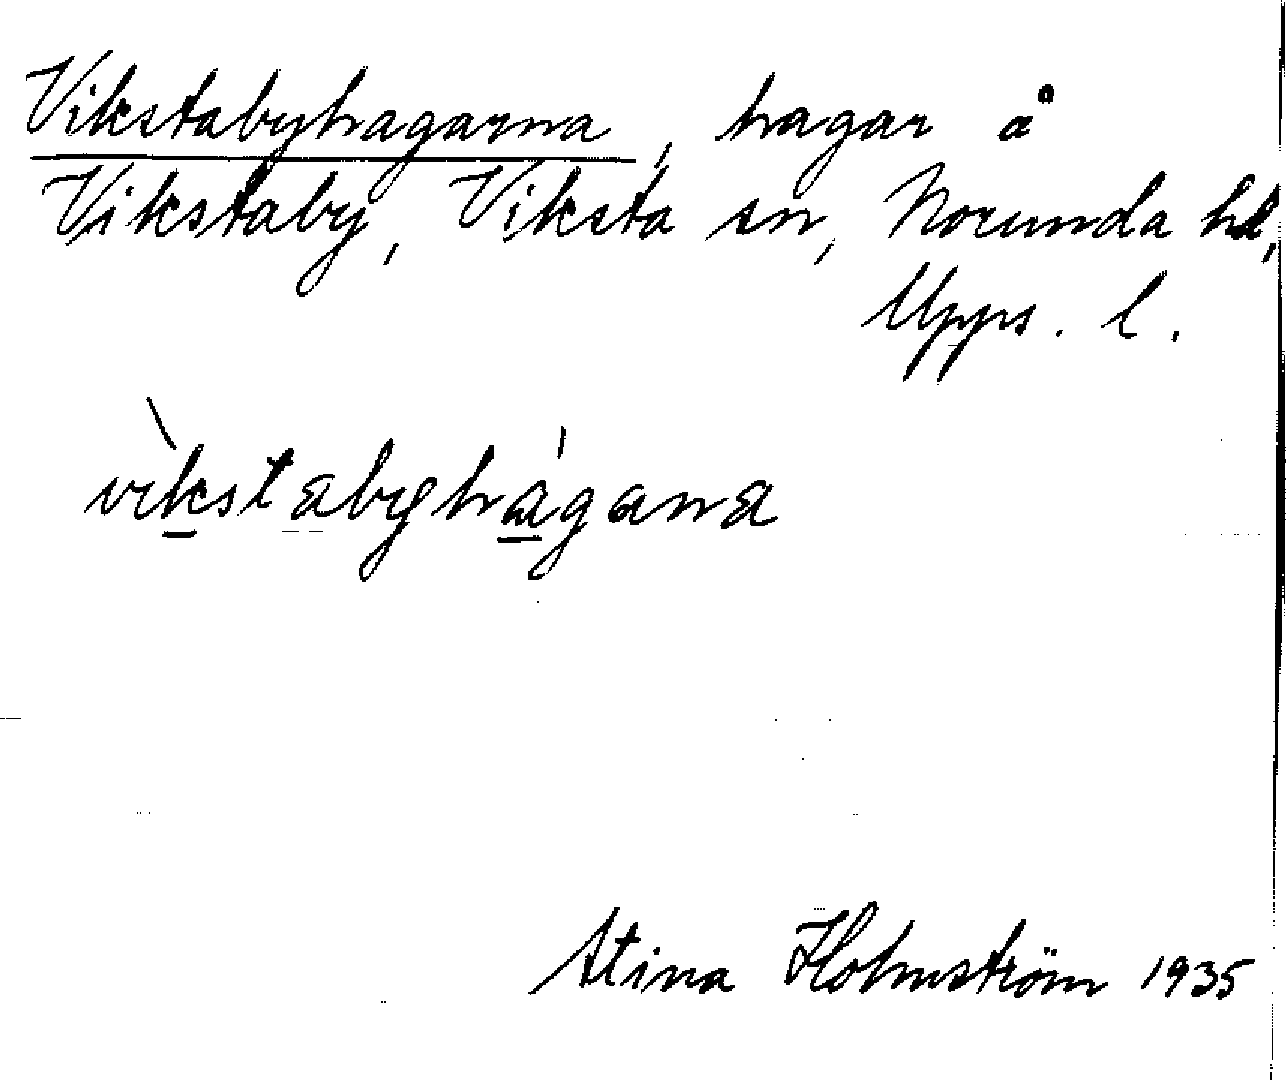 Vikstabyhagarna, hagar å
Vikstaby, Viksta sn, Norunda hd,
Upps. l.
vìkstabyhágana
Stina Holmström 1935